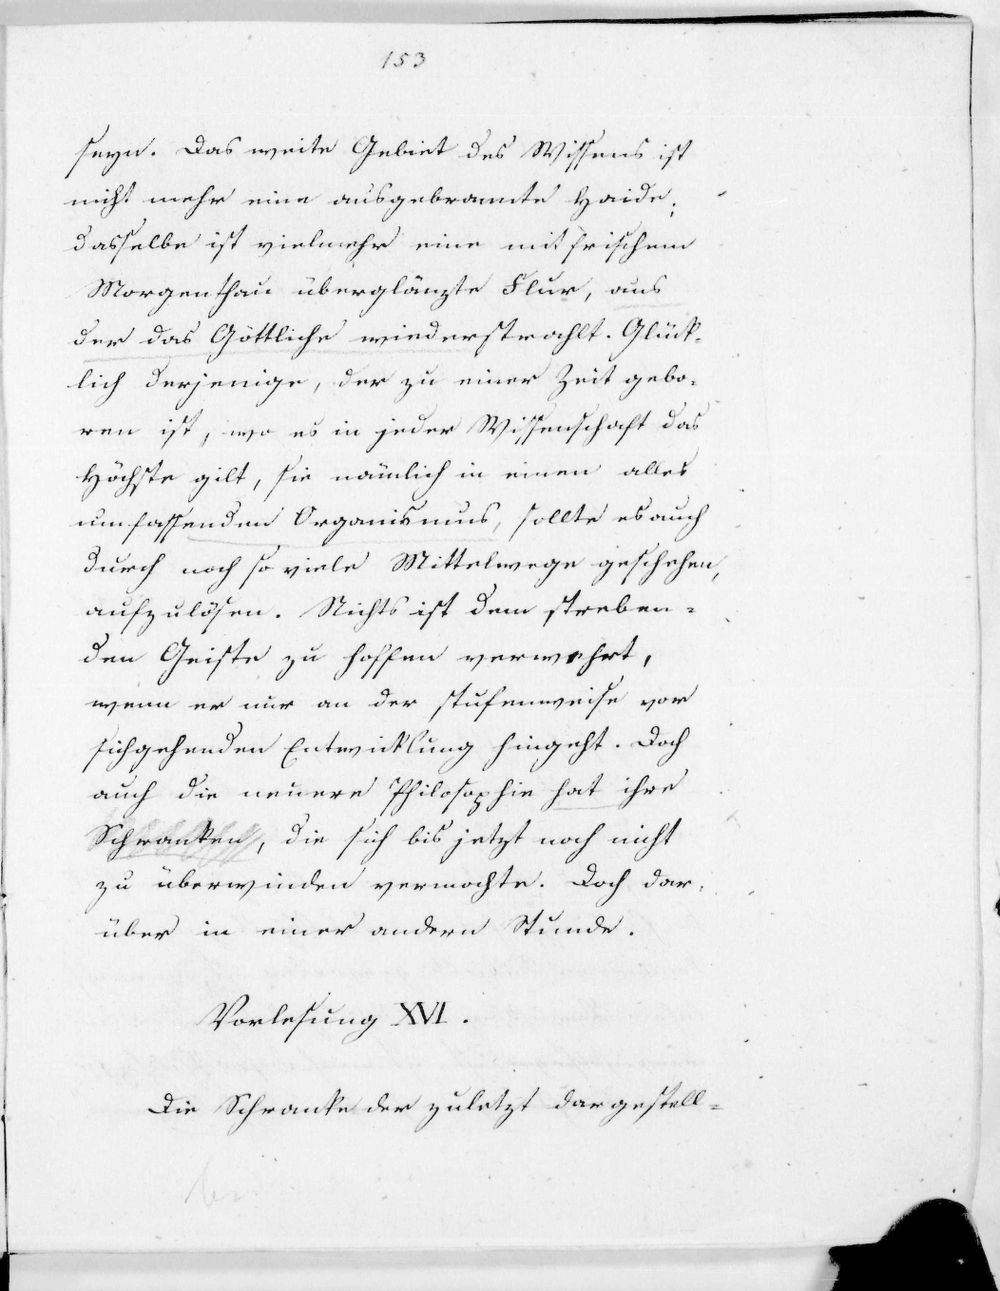 153
seyn. Das weite Gebiet des Wissens ist
nicht mehr eine ausgebrannte Haide;
dasselbe ist vielmehr eine mit frischem
Morgenthau überglänzte Flur, aus
der das Göttliche wiederstrahlt. Glück-
lich derjenige, der zu einer Zeit gebo-
ren ist, wo es in jeder Wissenschaft das
Höchste gilt, sie nämlich in einen alles
umfassenden Organismus, sollte es auch
durch noch so viele Mittelwege geschehen,
aufzulösen. Nichts ist dem streben-
den Geiste zu hoffen verwehrt,
wenn er nur an der stufenweise vor
sichgehenden Entwicklung hingeht. Doch
auch die neuere Philosophie hat ihre
Schranken, die sich bis jetzt noch nicht
zu überwinden vermochte. Doch dar-
über in einer andern Stunde.
Vorlesung XVI.
Die Schranke der zuletzt dargestell-